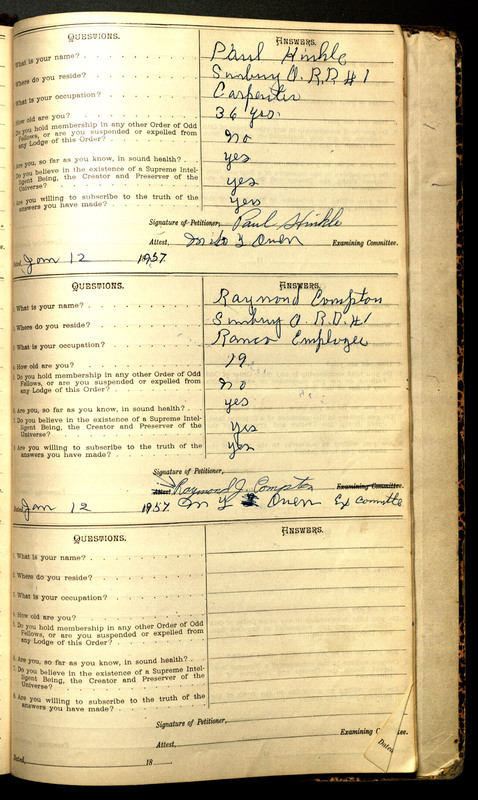 QUESTIONS. ANSWERS.
What is your name? Paul Hinkle
Where do you reside? Sunbury O. R.D. #1
What is your occupation? Carpenter
How old are you? 36 yrs.
Do you hold membership in any other Order of Odd
Fellows, or are you suspended or expelled from
any Lodge of this Order? no
Are you, so far as you know, in sound health? yes
Do you believe in the existence of a Supreme Intel-
ligent Being, the Creator and Preserver of the
Universe? yes
Are you willing to subscribe to the truth of the
answers you have made? yes
Signature of Petitioner, Paul Hinkle
Attest, Owen Examining Committee.
Jan 12 1957
QUESTIONS. ANSWERS.
What is your name? Raymond Compton
Where do you reside? Sunbury O. R.D. #1
What is your occupation? Ranco Employee
How old are you? 19
Do you hold membership in any other Order of Odd
Fellows, or are you suspended or expelled from
any Lodge of this Order? no
Are you, so far as you know, in sound health? yes
Do you believe in the existence of a Supreme Intel-
ligent Being, the Creator and Preserver of the
Universe? yes
Are you willing to subscribe to the truth of the
answers you have made? yes
Signature of Petitioner,
Attest, Raymond J. Compton Examining Committee.
Dated, Jan 12 1957 Owen Ex Committe
QUESTIONS. ANSWERS.
1. What is your name?
2. Where do you reside?
3. What is your occupation?
4. How old are you?
5. Do you hold membership in any other Order of Odd
Fellows, or are you suspended or expelled from
any Lodge of this Order?
6. Are you, so far as you know, in sound health?
7. Do you believe in the existence of a Supreme Intel-
ligent Being, the Creator and Preserver of the
Universe?
8. Are you willing to subscribe to the truth of the
answers you have made?
Signature of Petitioner,
Attest, Examining
Dated, 18
Dated